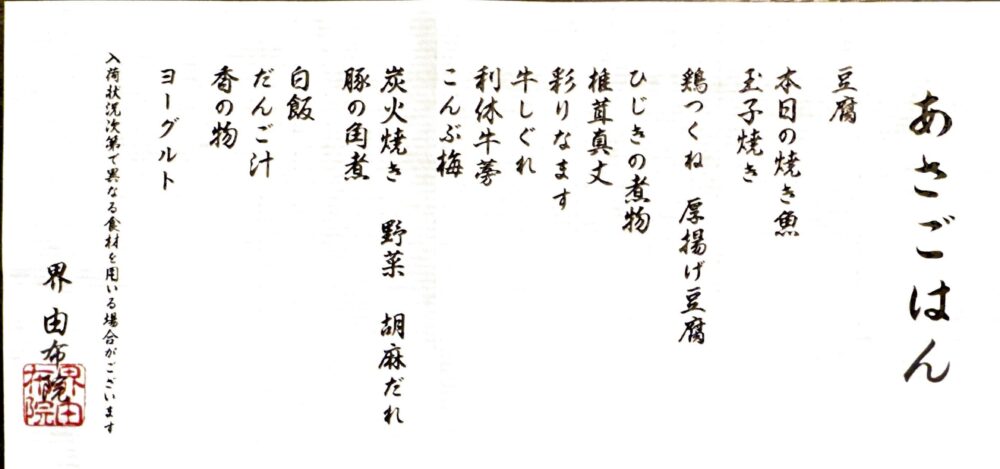 あさごはん
豆腐
本日の焼き魚
玉子焼き
鶏つくね　厚揚げ豆腐
ひじきの煮物
椎茸真丈
彩りなます
牛しぐれ
利休牛蒡
こんぶ梅
炭火焼き　野菜　胡麻だれ
豚の角煮
白飯
だんご汁
香の物
ヨーグルト
入荷状況次第で異なる食材を用いる場合がございます
界　由布院
界由布院